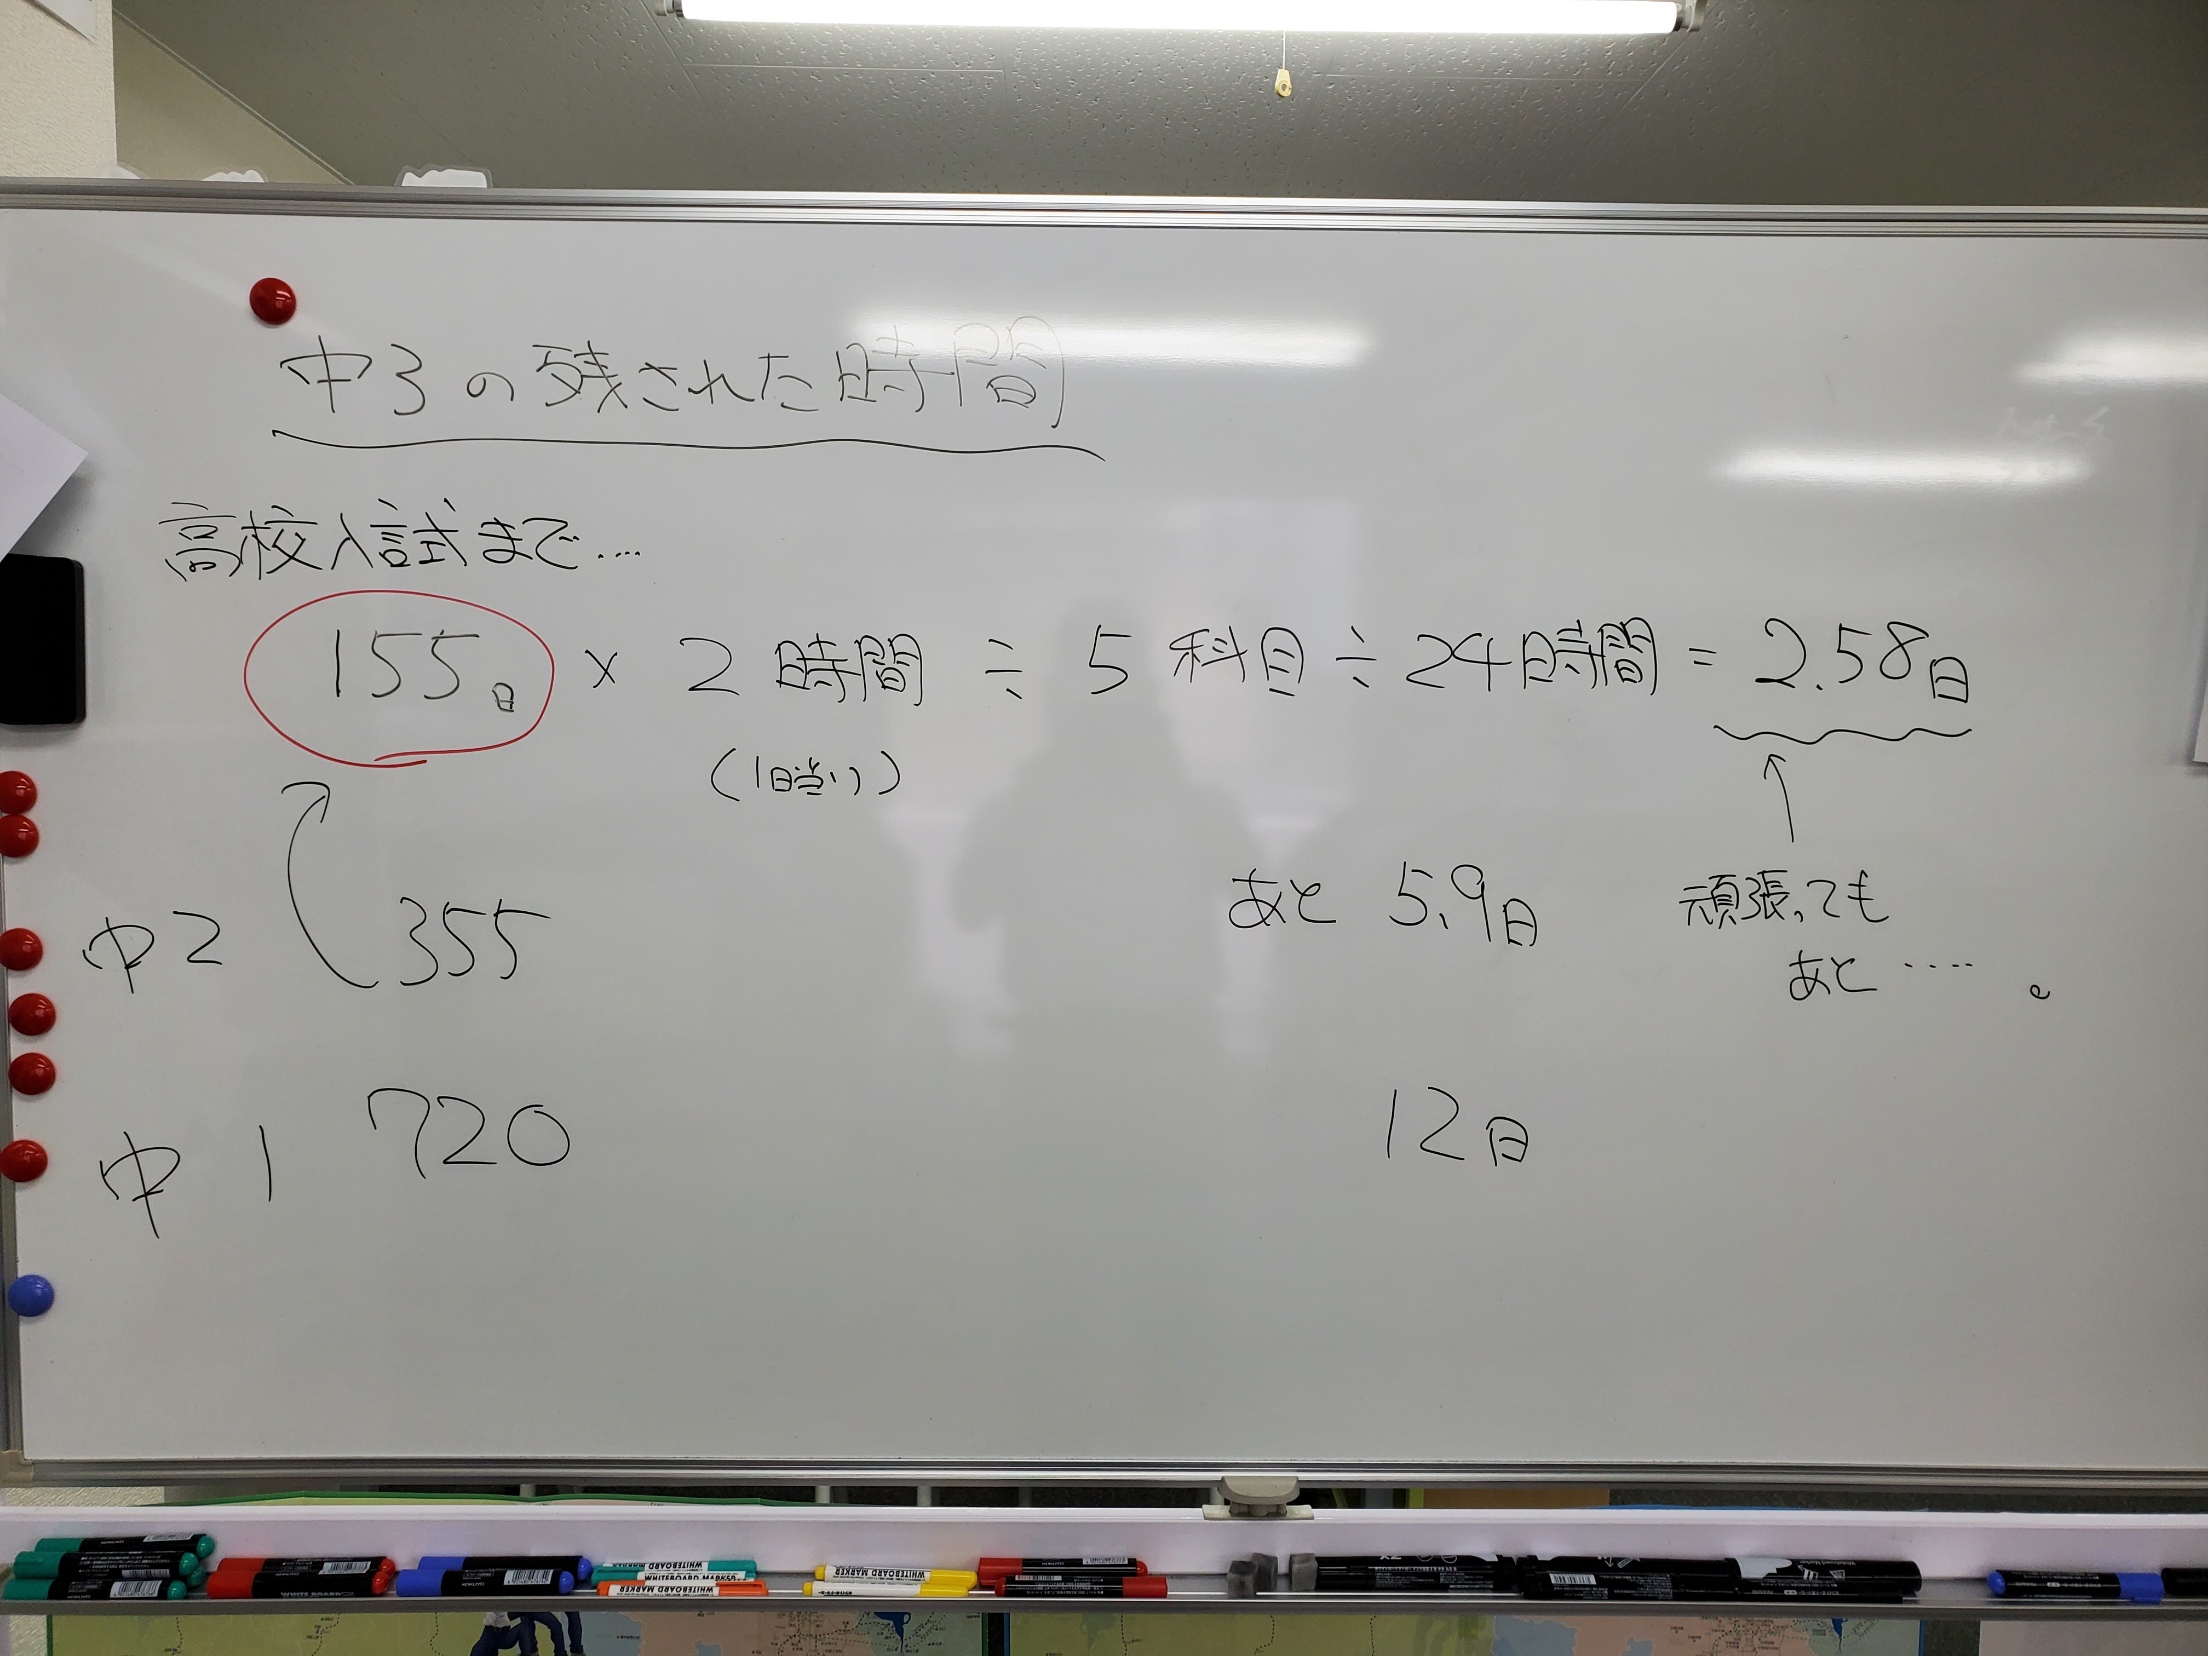 中3の残された時間
高校入試まで....
155日 × 2時間 ÷ 5科目 ÷ 24時間 = 2.58日
(1日当り)
中2 355 あと 5.9日
頑張っても
あと ‥‥。
中1 720 12日
WHITEBOARD MARKER
WHITEBOARD MARKER
WHITEBOARD MARKER